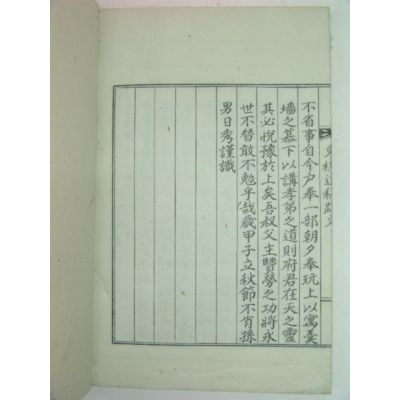 東
不省事自今戶奉一部朝夕奉玩上以寓羹
墻之慕下以講孝弟之道則府君在天之靈
其必悅豫於上矣吾叔父主贒勞之功將永
世不替敢不勉乎哉歲甲子立秋節不肖孫
男日秀謹識